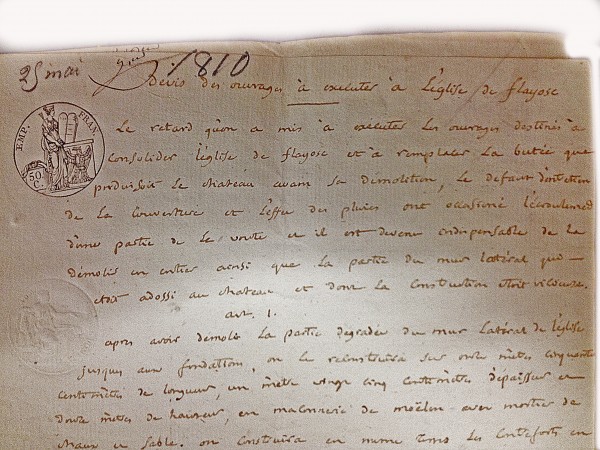 25 mai 1810
Devis des ouvrages à exécuter à L'église de flayosc
EMP. FRAN.
50 C.
Le retard qu'on a mis à exécuter les ouvrages destinés à
consolider l'église de flayosc et à remplacer la butée que
produisoit le chateau avant sa démolition, le defaut d'entretien
de la couverture et l'effet des pluies ont occasioné l'écroulement
d'une partie de la voute et il est devenu indispensable de la
démolir en entier ainsi que la partie du mur latéral qui
étoit adossé au chateau et dont la construction étoit vicieuse.
art. 1.
après avoir démoli la partie dégradée du mur latéral de l'église
jusques aux fondations, on le reconstruira sur onze mètres cinquante
centimètres de longueur, un mètre vingt cinq centimètres d'épaisseur et
douze mètres de hauteur, en maçonnerie de moëlon avec mortier de
chaux et sable. on construira en même tems les contreforts en